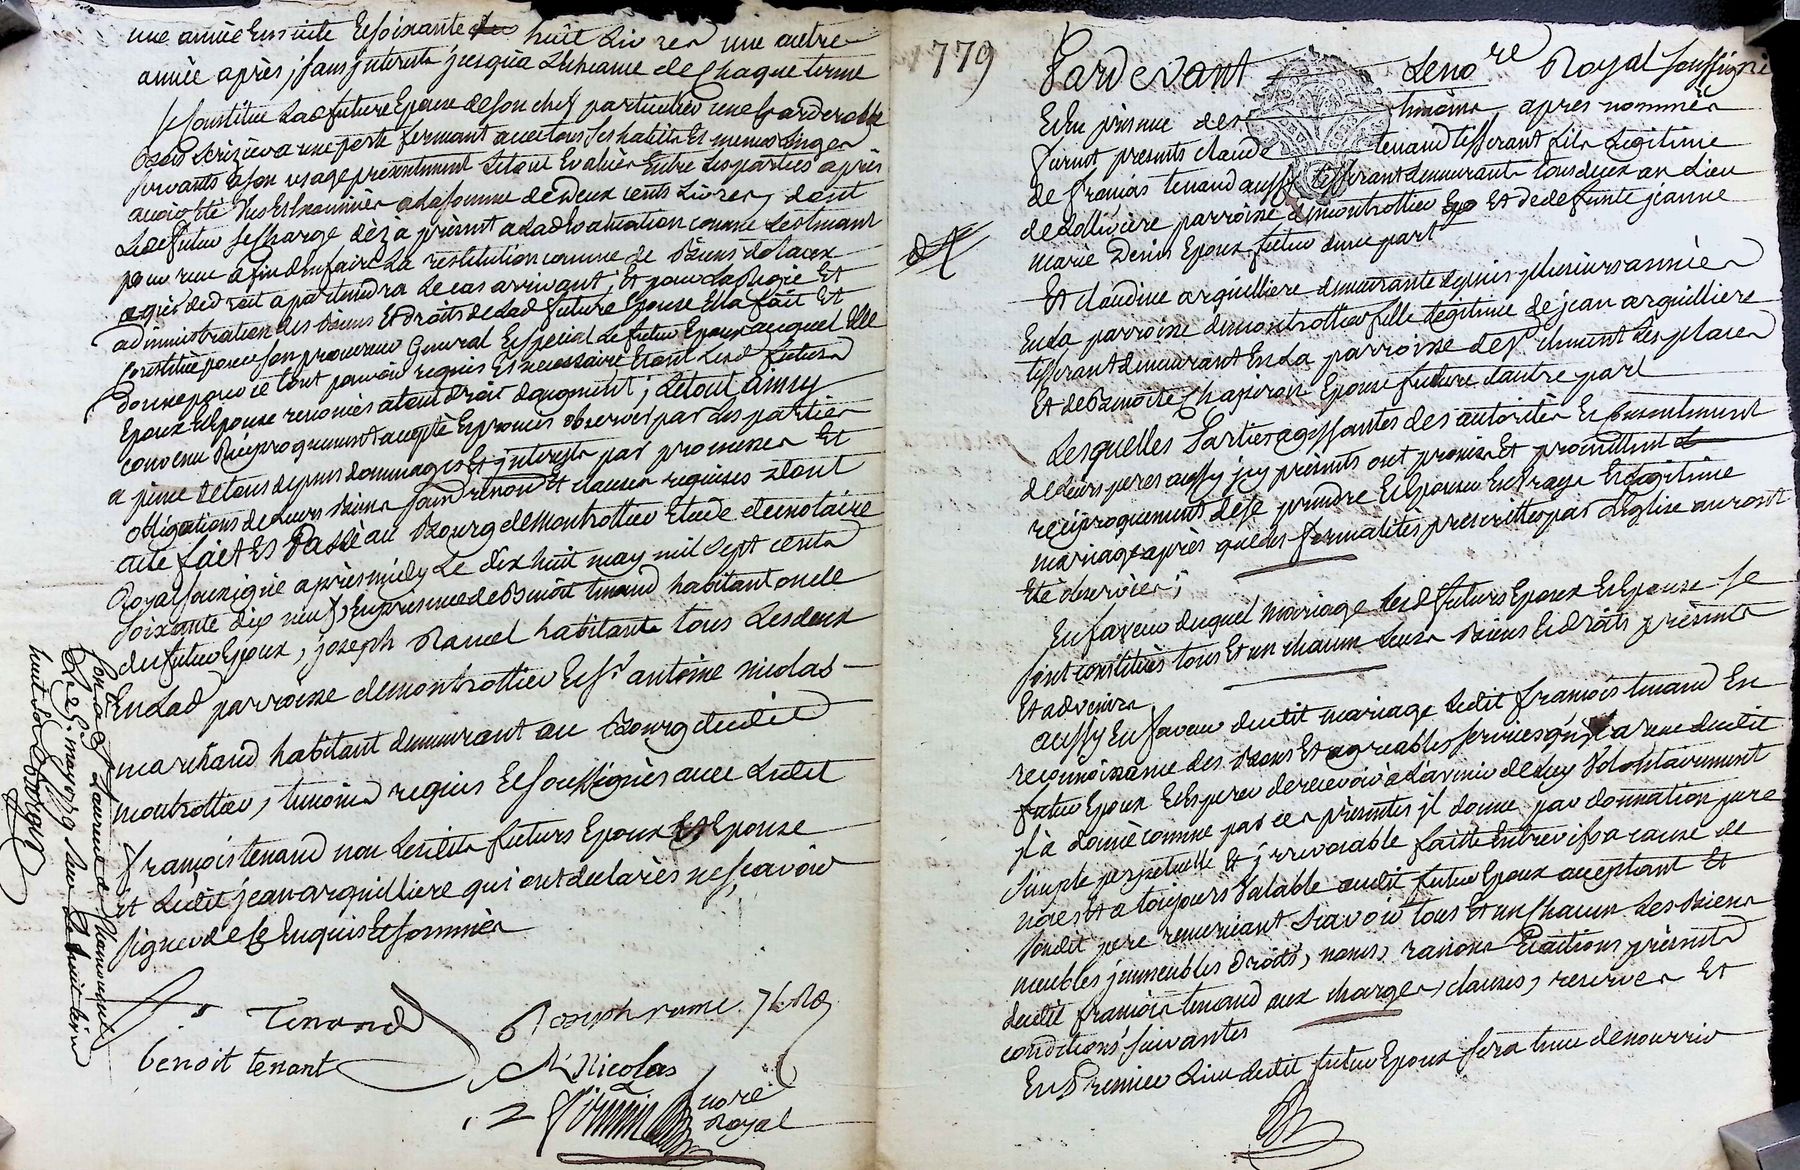 une année Ensuite Et soixante huit Livres une autre
année après, sans jnterests jusqu'a L'Echeance de Chaque terme
Se Constitue Lad future Epouse de son chef particulier une garderobbe
bois Cerizier a une porte fermant avec tous ses habits Et menus Linges
servants a son usage presentement Le tout Evalué Entre Les parties après
avoir été Vus Et Examinés a la somme de Deux cents Livres, dont
Led futur se Charge dèz à présent a lad Evaluation comme Les tenant
pour reçu afin d'en faire La restitution comme de Biens dotaux
a qui de droit apartiendra Le cas arrivant, Et pour La Regie Et
administration des Biens Et droits de Lad future Epouse Elle fait Et
Constitue pour son procureur General Et special Le futur Epoux auquel Elle
donne pour ce tout pouvoir requis Et necessaire Etant Lesd futurs
Epoux Et Epouse renoncés a tout droit d'augment; Le tout ainsy
convenu Reciproquement accepté Et promis observer par Les parties
a peine de tous depens dommages Et jnterests par promesses Et
obligations de Leurs Biens soumissions Et clauses requises Dont
acte fait Et Passé au Bourg de Montrottier Etude du notaire
Royal soussigné après midy Le dix huit may mil sept cents
soixante dix neuf, En presence de Benoit tenaud habitant oncle
du futur Epoux, joseph Ramel habitants tous Les deux
En Lad parroisse de montrottier Et Sr antoine nicolas
marchand habitant demeurant au Bourg dudit
montrottier, temoins requis Et soussignés avec Ledit
françois tenaud non Lesdits futurs Epoux Et Epouse
et Ledit jean arquilliere qui ont declarés ne sçavoir
signer de ce Enquis Et sommés
fs Tenaud
joseph ramel
benoit tenant
A Nicolas
nore
Royal
Laurent de Chamousset
Le 25 may 1779 reçu
huit sols
1779
Pardevant Le nore Royal soussigné
Et En presence des temoins après nommés
furent presents claude tenaud tisserant fils Legitime
de françois tenaud aussy tisserant demeurants tous deux au Lieu
de Lollivière parroisse de montrottier Et de defunte jeanne
marie Denis Epoux futur d'une part
Et claudine arquilliere demeurante depuis plusieurs années
En La parroisse de montrottier fille Legitime de jean arquilliere
tisserant demeurant En La parroisse de St clement Les places
Et de Benoite Chaperon Epouse future d'autre part
Lesquelles Parties agissantes des autorités Et Consentement
de Leurs peres aussy jcy présents ont promis Et promettent
reciproquement de se prendre Et Epouser En Vraye Et Legitime
mariage après que les formalités prescrittes par L'Eglise auront
Eté observées;
En faveur duquel mariage Lesd futurs Epoux Et Epouse se
sont constitués tous Et un chacun Leurs Biens Et droits présents
Et advenirs
aussy En faveur dudit mariage Ledit françois tenaud En
reconnoissance des Bons Et agreables services qu'il a reçu dudit
futur Epoux Et Espere de recevoir à L'avenir de Luy Volontairement
jl a donné comme par ces présentes jl donne par donnation pure
simple perpetuelle Et jrrevocable faitte Entre vifs a cause de
nôces Et a toujours Valable audit futur Epoux acceptant Et
sondit pere remerciant scavoir tous Et un Chacun Les Biens
meubles jmmeubles droits, noms, raisons Et actions présents
dudit françois tenaud aux charges, clauses, reserves Et
conditions suivantes
En Premier Lieu Ledit futur Epoux sera tenu de nourrir